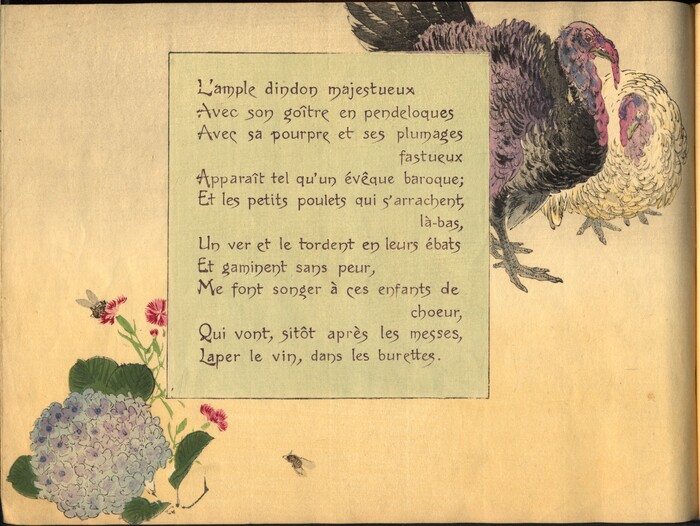 L'ample dindon majestueux
Avec son goître en pendeloques
Avec sa pourpre et ses plumages
fastueux
Apparaît tel qu'un évêque baroque;
Et les petits poulets qui s'arrachent,
là-bas,
Un ver et le tordent en leurs ébats
Et gaminent sans peur,
Me font songer à ces enfants de
choeur,
Qui vont, sitôt après les messes,
Laper le vin, dans les burettes.